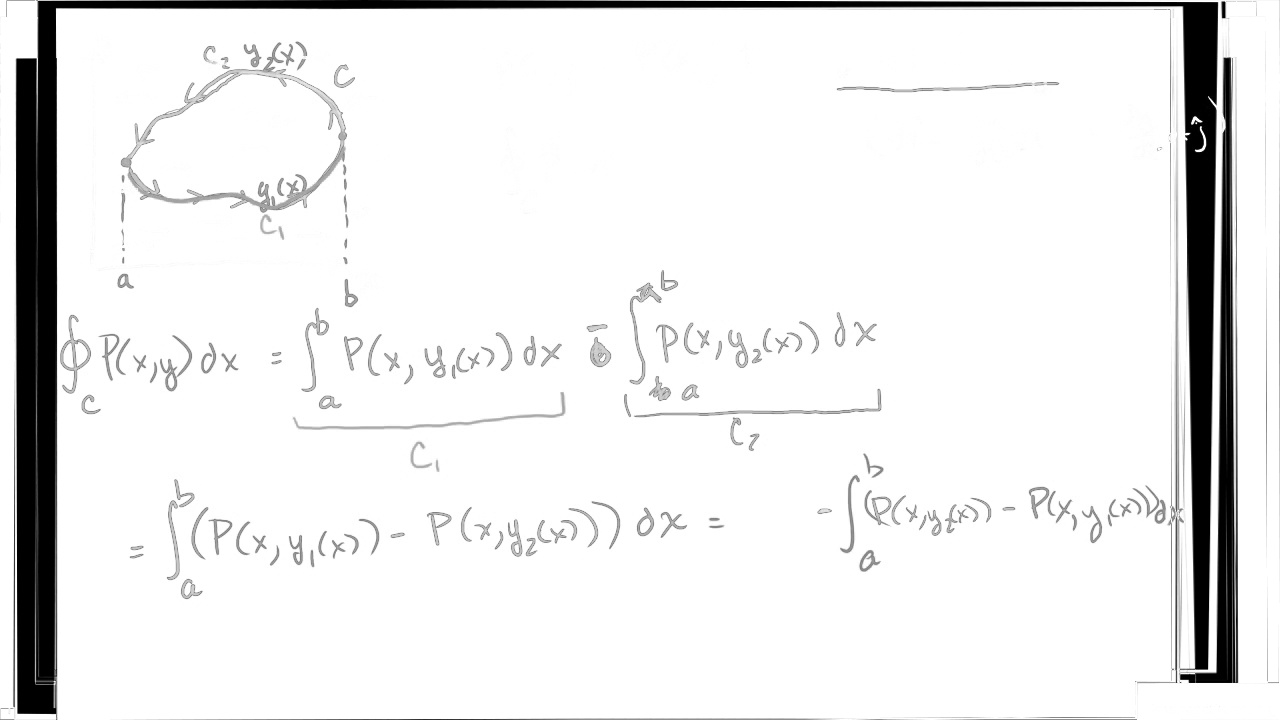 C₂ y₂(x)
C
y₁(x)
C₁
a
b
∮_C P(x,y) dx = ∫_a^b P(x, y₁(x)) dx - ∫_a^b P(x, y₂(x)) dx
C₁ C₂
= ∫_a^b (P(x, y₁(x)) - P(x, y₂(x))) dx = - ∫_a^b (P(x, y₂(x)) - P(x, y₁(x))) dx
ĵ)